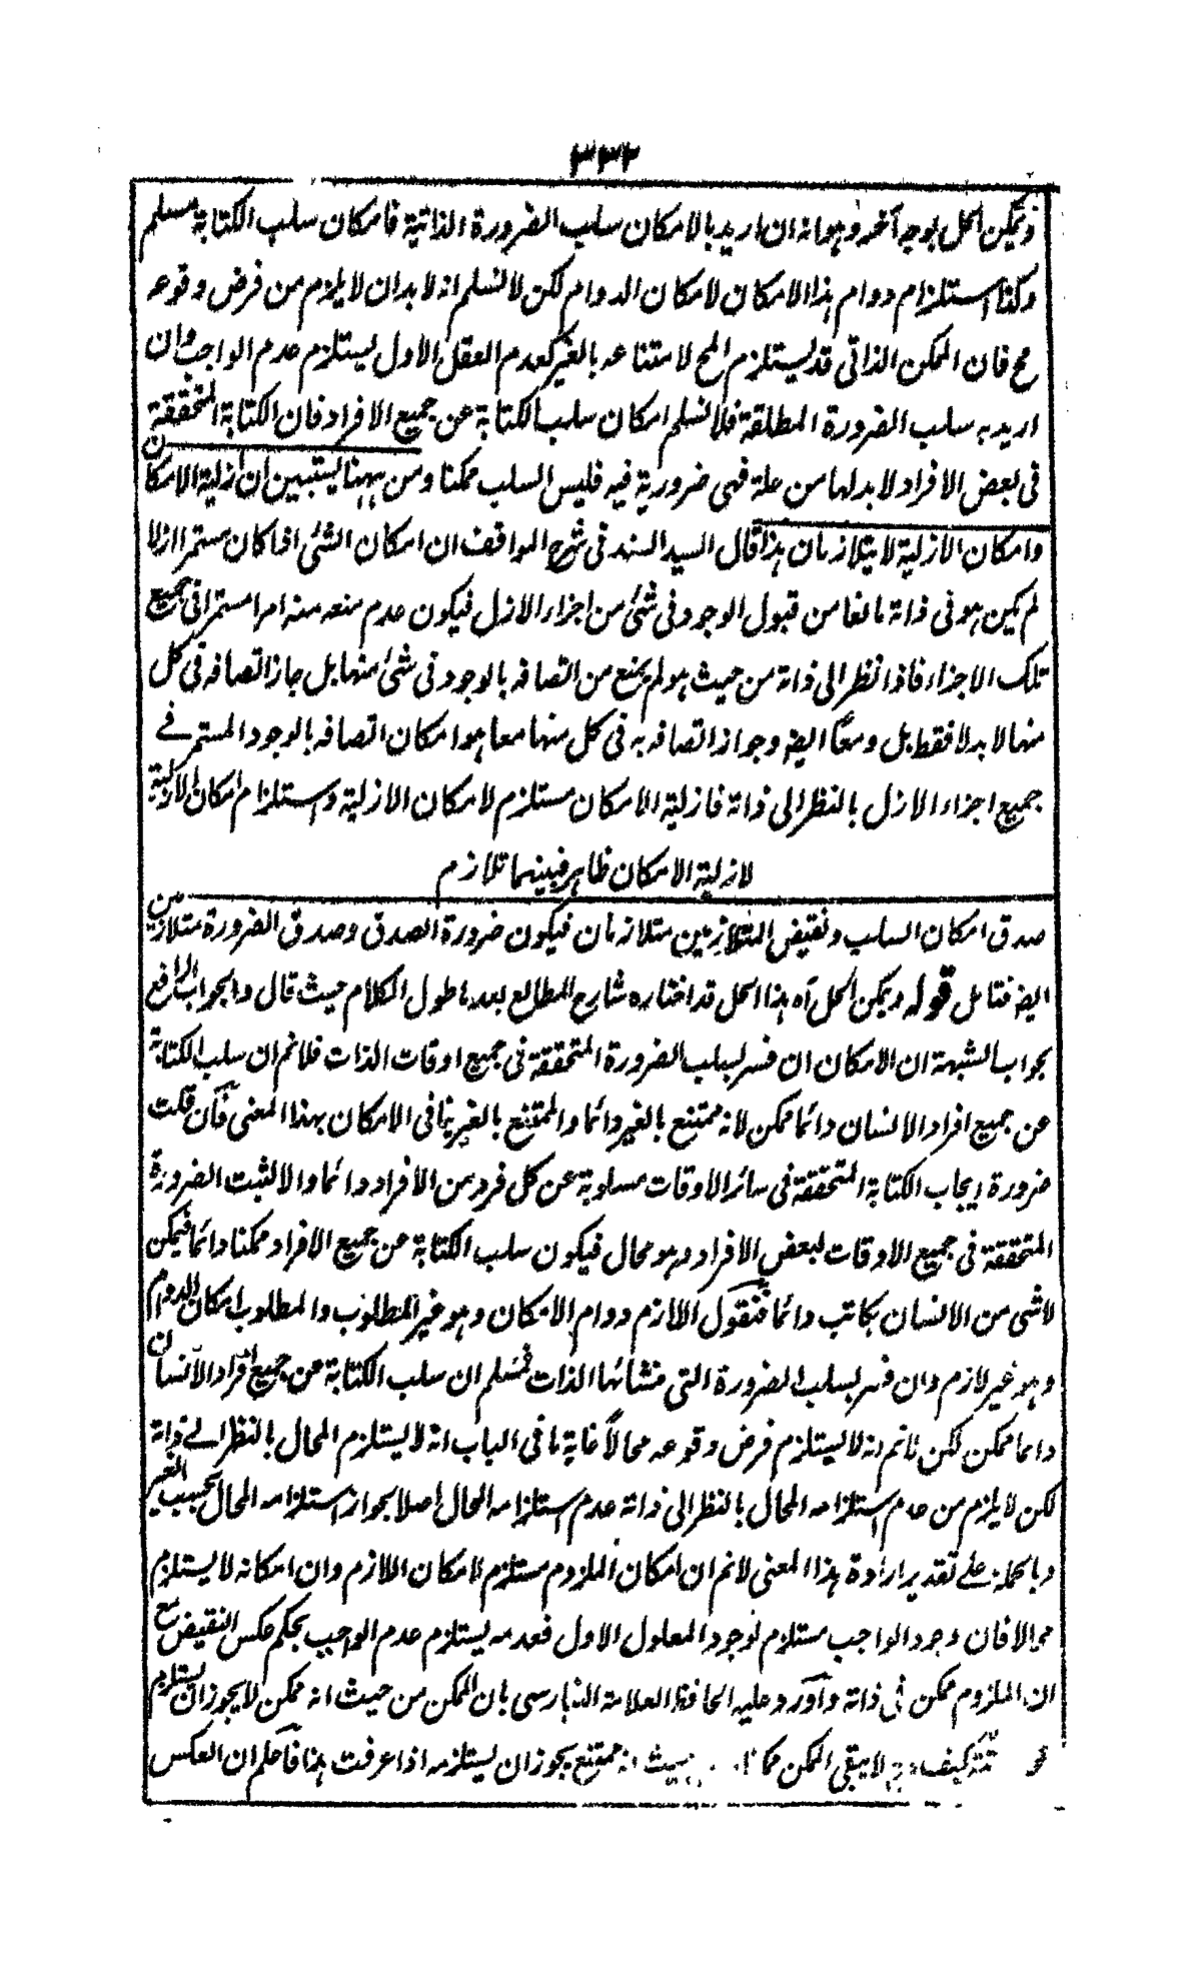 ٣٣٢
ويمكن الحل بوجه آخر وهو انه ان اريد بالامكان سلب الضرورة الذاتية فامكان سلب الكتابة مسلم
وكذا استلزام دوام هذا الامكان لامكان الدوام لكن لا نسلم انه لا بد ان لا يلزم من فرض وقوعه
مح فان الممكن الذاتي قد يستلزم المح لامتناعه بالغير كعدم العقل الاول يستلزم عدم الواجب وان
اريد به سلب الضرورة المطلقة فلا نسلم امكان سلب الكتابة عن جميع الافراد فان الكتابة المتحققة
في بعض الافراد لا بد لها من علة فهي ضرورية فيه فليس السلب ممكنا ومن ههنا يستبين ان ازلية الامكان
وامكان الازلية لا يتلازمان هذا قال السيد السند في شرح المواقف ان امكان الشئ اذا كان مستمرا ازلا
لم يكن هو في ذاته مانعا من قبول الوجود في شئ من اجزاء الازل فيكون عدم منعه منه امرا مستمرا في جميع
تلك الاجزاء فاذا نظر الى ذاته من حيث هو لم يمنع من اتصافه بالوجود في شئ منها بل جاز اتصافه في كل
منها لا بدلا فقط بل ومعًا ايضه وجواز اتصافه به في كل منها معا هو امكان اتصافه بالوجود المستمر في
جميع اجزاء الازل بالنظر الى ذاته فازلية الامكان مستلزم لامكان الازلية واستلزام امكان الازلية
لازلية الامكان ظاهر فبينهما تلازم
صدق امكان السلب ونقيض المتلازمين متلازمان فيكون ضرورة الصدق وصدق الضرورة متلازمين
ايضه فتامل قوله ويمكن الحل آه هذا الحل قد اختاره شارح المطالع بعد ما طول الكلام حيث قال والجواب الرافع
بجواب الشبهة ان الامكان ان فسر بسلب الضرورة المتحققة في جميع اوقات الذات فلانم ان سلب الكتابة
عن جميع افراد الانسان دائما ممكن لانه ممتنع بالغير دائما والممتنع بالغير ينافى الامكان بهذا المعنى فان قلت
ضرورة ايجاب الكتابة المتحققة في سائر الاوقات مسلوبة عن كل فرد من الافراد دائما والا لثبت الضرورة
المتحققة في جميع الاوقات لبعض الافراد وهو محال فيكون سلب الكتابة عن جميع الافراد ممكنا دائما فيمكن
لاشئ من الانسان بكاتب دائما فنقول اللازم دوام الامكان وهو غير المطلوب والمطلوب امكان الدوام
وهو غير لازم وان فسر بسلب الضرورة التي منشائها الذات فمسلم ان سلب الكتابة عن جميع افراد الانسان
دائما ممكن لكن لانم انه لا يستلزم فرض وقوعه محالا غاية ما في الباب انه لا يستلزم المحال بالنظر الى ذاته
لكن لا يلزم من عدم استلزامه المحال بالنظر الى ذاته عدم استلزامه المحال اصلا بجواز استلزامه المحال بحسب الغير
وبالجملة على تقدير ارادة هذا المعنى لانم ان امكان الملزوم مستلزم لامكان اللازم وان امكانه لا يستلزم
محالا فان وجود الواجب مستلزم لوجود المعلول الاول فعدمه يستلزم عدم الواجب بحكم عكس النقيض مع
ان الملزوم ممكن في ذاته واورد عليه الحافظ العلامة البنارسى بان الممكن من حيث انه ممكن لا يجوز ان يستلزم
كيف وح لا يبقى الممكن حيث انه ممتنع يجوز ان يستلزمه اذا عرفت هذا فاعلم ان العكس